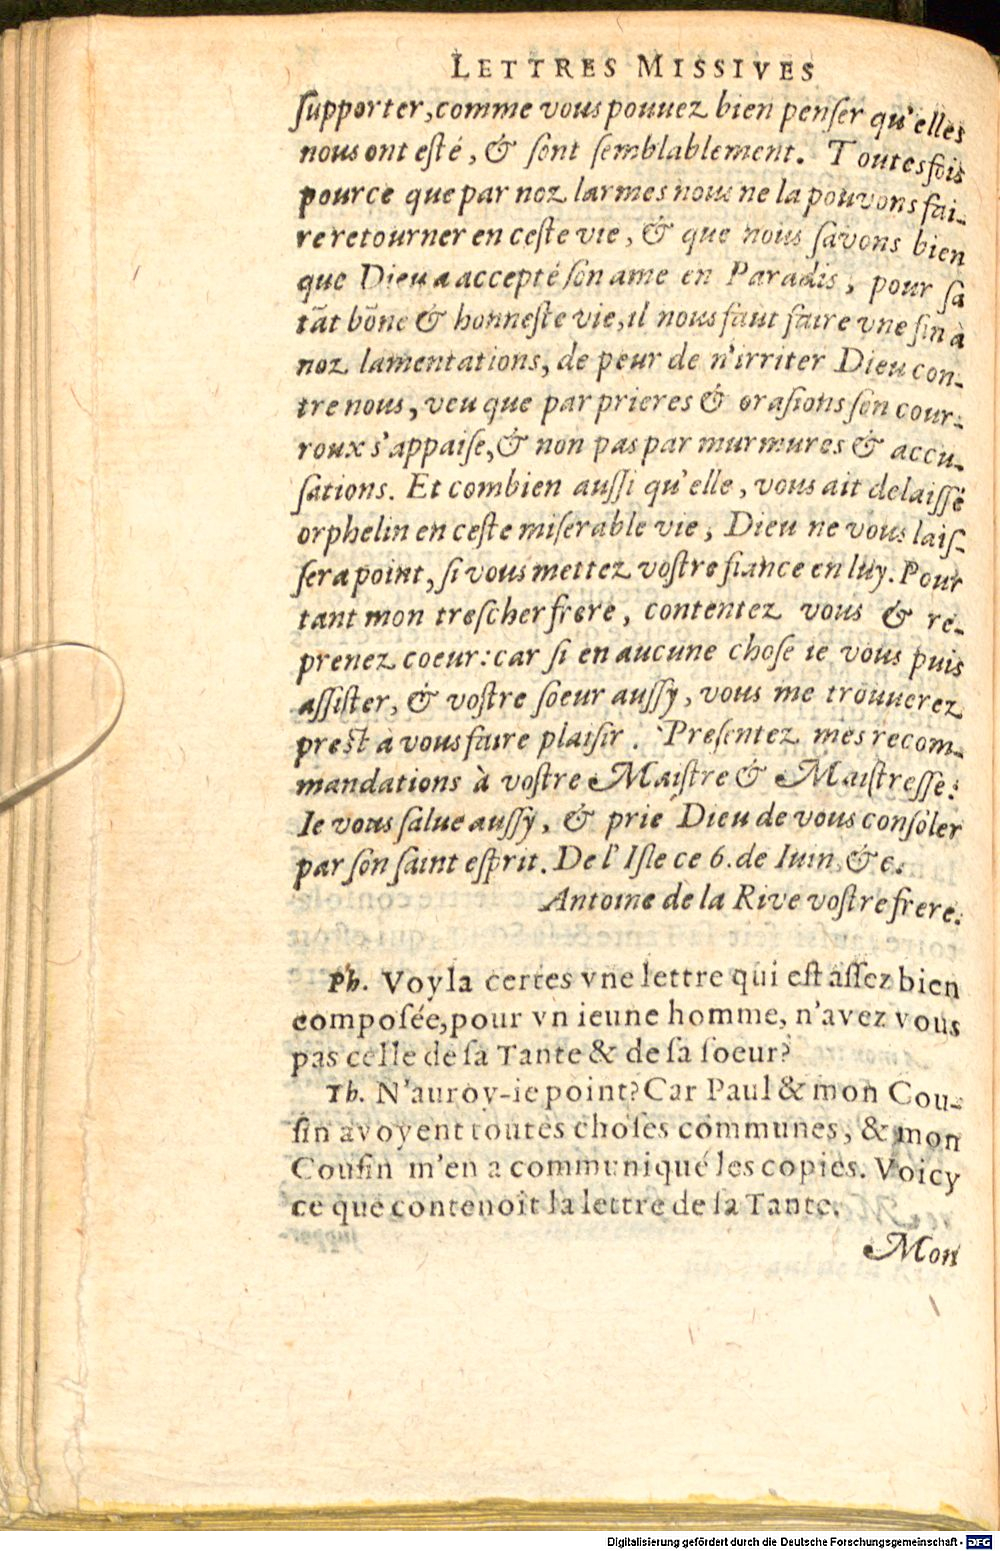 LETTRES MISSIVES
ſupporter, comme vous pouuez bien penſer qu'elles
nous ont eſté, & ſont ſemblablement. Toutesfois
pource que par noz larmes nous ne la pouvons fai-
re retourner en ceſte vie, & que nous ſavons bien
que Dieu a accepté ſon ame en Paradis, pour ſa
tãt bõne & honneſte vie, il nous faut faire vne fin à
noz lamentations, de peur de n'irriter Dieu con-
tre nous, veu que par prieres & oraſions ſon cour-
roux s'appaiſe, & non pas par murmures & accu-
ſations. Et combien auſſi qu'elle, vous ait delaiſſé
orphelin en ceſte miſerable vie, Dieu ne vous laiſ-
ſera point, ſi vous mettez voſtre fiance en luy. Pour
tant mon treſcher frere, contentez vous & re-
prenez coeur: car ſi en aucune choſe ie vous puis
aſſiſter, & voſtre ſoeur auſſy, vous me trouuerez
preſt à vous faire plaiſir. Preſentez mes recom-
mandations à voſtre Maiſtre & Maiſtreſſe:
Ie vous ſalue auſſy, & prie Dieu de vous conſoler
par ſon ſaint eſprit. De l'Iſle ce 6. de Iuin &c.
Antoine de la Rive voſtre frere.
Ph. Voyla certes vne lettre qui eſt aſſez bien
compoſée, pour vn ieune homme, n'avez vous
pas celle de ſa Tante & de ſa ſoeur?
Th. N'auroy-ie point? Car Paul & mon Cou-
ſin avoyent toutes choſes communes, & mon
Couſin m'en a communiqué les copies. Voicy
ce que contenoit la lettre de ſa Tante.
Mon
Digitalisierung gefördert durch die Deutsche Forschungsgemeinschaft - DFG